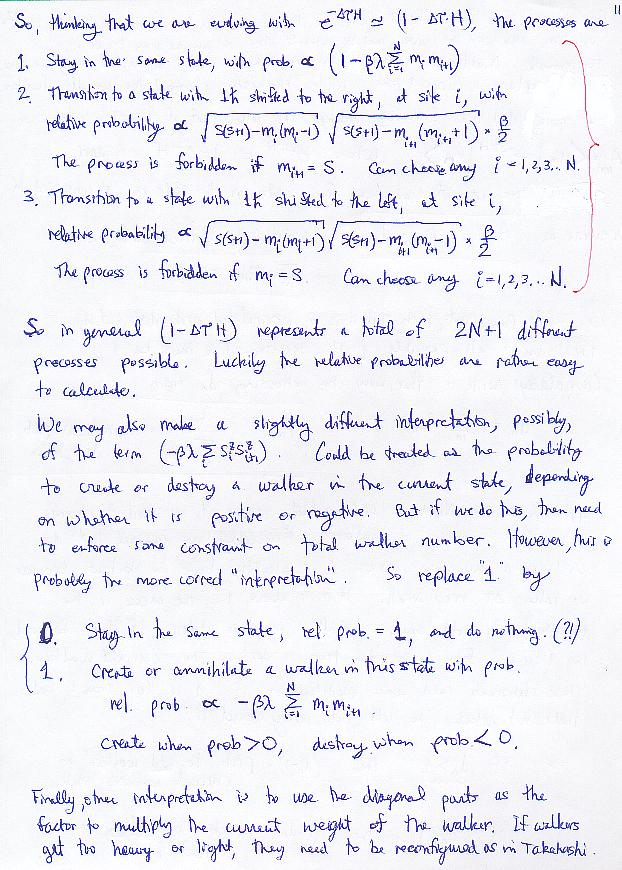 11
So, thinking that we are evolving with e^{-ΔτH} ≃ (1 - ΔτH), the processes are
1. Stay in the same state, with prob. ∝ (1 - βλ Σ_{i=1}^{N} m_i m_{i+1})
2. Transition to a state with 1ħ shifted to the right, at site i, with
relative probability ∝ √(S(S+1) - m_i(m_i - 1)) √(S(S+1) - m_{i+1}(m_{i+1} + 1)) × β/2
The process is forbidden if m_{i+1} = S. Can choose any i = 1,2,3... N.
3. Transition to a state with 1ħ shifted to the left, at site i,
relative probability ∝ √(S(S+1) - m_i(m_i+1)) √(S(S+1) - m_{i+1}(m_{i+1} - 1)) × β/2
The process is forbidden if m_i = S. Can choose any i = 1,2,3... N.
So in general (1 - ΔτH) represents a total of 2N+1 different
processes possible. Luckily the relative probabilities are rather easy
to calculate.
We may also make a slightly different interpretation, possibly,
of the term (-βλ Σ_i S_i^z S_{i+1}^z). Could be treated as the probability
to create or destroy a walker in the current state, depending
on whether it is positive or negative. But if we do this, then need
to enforce some constraint on total walker number. However, this is
probably the more correct "interpretation". So replace "1" by
0. Stay in the same state, rel. prob. = 1, and do nothing. (?!)
1. Create or annihilate a walker in this state with prob.
rel. prob. ∝ -βλ Σ_{i=1}^{N} m_i m_{i+1}
Create when prob > 0, destroy when prob < 0.
Finally, other interpretation is to use the diagonal parts as the
factor to multiply the current weight of the walker. If walkers
get too heavy or light, they need to be reconfigured as in Takahashi.